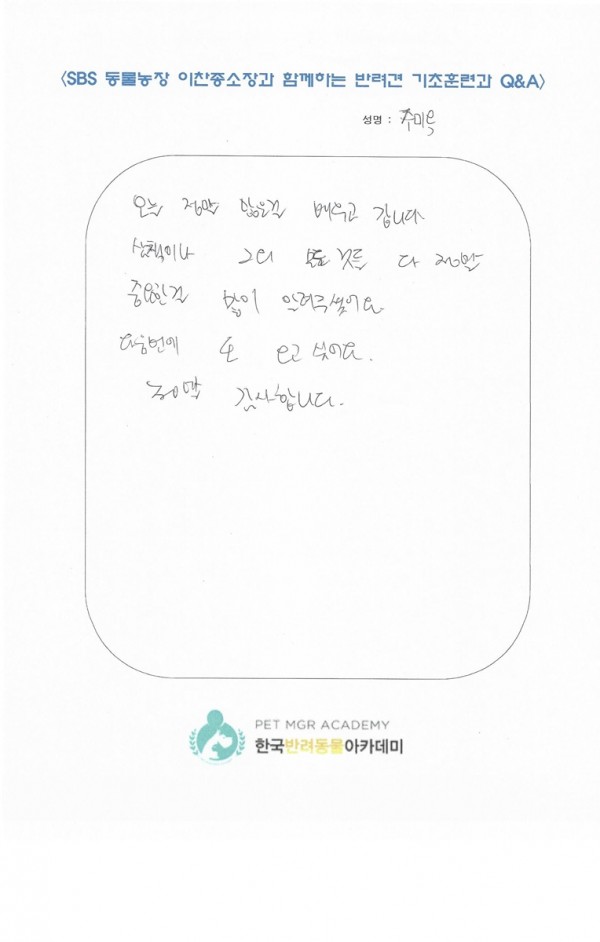 <SBS 동물농장 이찬종소장과 함께하는 반려견 기초훈련과 Q&A>
성명 : 주미옥
오늘 정말 많은걸 배우고 갑니다
산책이나 그외 모든 것들 다 정말
중요한걸 많이 알려주셨어요
다음번에 또 오고 싶어요.
정말 감사합니다.
PET MGR ACADEMY
한국반려동물아카데미